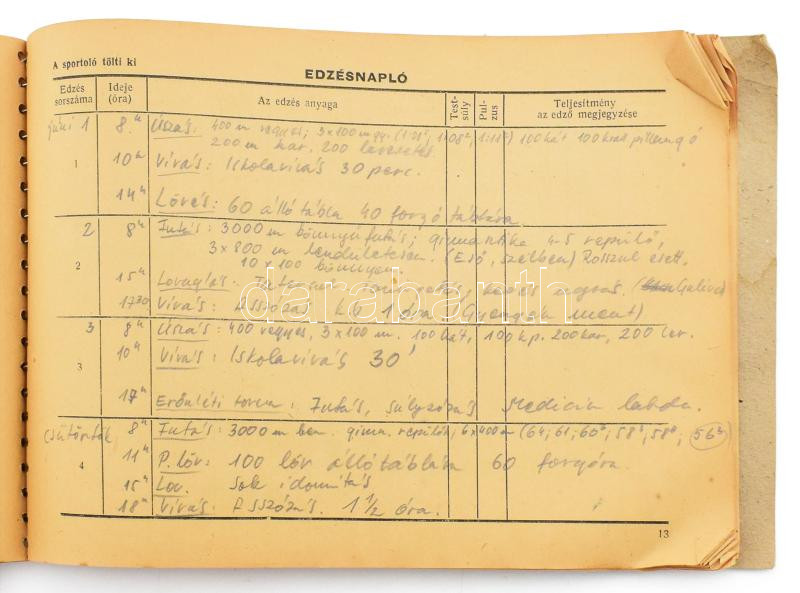 A sportoló tölti ki
EDZÉSNAPLÓ
Edzés sorszáma
Ideje (óra)
Az edzés anyaga
Test-súly
Pul-zus
Teljesítmény az edző megjegyzése
1 8h Úszás: 400 m vegyes; 3x100 m gy. (1:01², 1:08², 1:11²) 100 hát 100 kar
200 m kar. 200 levezetés.
1
10h Vívás: Iskolavívás 30 perc.
14h Lövés: 60 álló tábla 40 forgó táblára
2 8h Futás: 3000 m könnyű futás; gimnastika 4-5 repülő,
2
3x800 m lendületesen. (Eső, szélben) Rosszul esett.
10x100 könnyen
15h Lovaglás: ugrás.
1730 Vívás: Asszózás kb 1 óra (Gyengén ment)
3 8h Úszás: 400 vegyes, 3x100 m. 100 hát, 100 kp. 200 kar, 200 lev.
3
10h Vívás: Iskolavívás 30'
17h Erőnléti torem: Futás, súlyzózás Medicin labda.
(csütörtök) 8h Futás: 3000 m ben. gimn. repülők, 6x400 m (64; 61; 60³; 58³; 58⁸; 56²)
4
11h P. löv: 100 löv álló táblára 60 forgóra.
15h Lov. Sok idomítás
18h Vívás: Asszózás. 1 1/2 óra.
13
darabanth